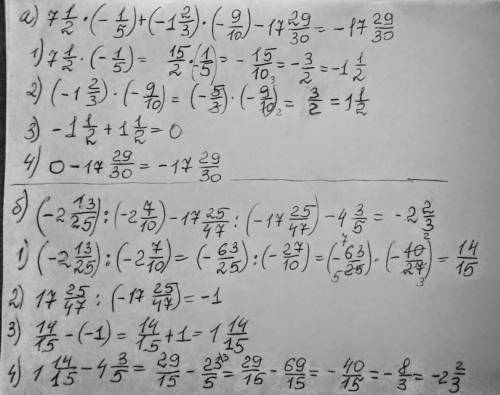 а) 7 1/2 · (- 1/5) + (-1 2/3) · (- 9/10) - 17 29/30 = -17 29/30
1) 7 1/2 · (- 1/5) = 15/2 · (1/5) = - 15/10 = - 3/2 = -1 1/2
2) (-1 2/3) · (- 9/10) = (- 5/3) · (- 9/10) = 3/2 = 1 1/2
3) -1 1/2 + 1 1/2 = 0
4) 0 - 17 29/30 = -17 29/30
б) (-2 13/25) : (-2 7/10) - 17 25/47 : (-17 25/47) - 4 3/5 = -2 2/3
1) (-2 13/25) : (-2 7/10) = (- 63/25) : (- 27/10) = (- 63/25) · (- 10/27) = 14/15
2) 17 25/47 : (-17 25/47) = -1
3) 14/15 - (-1) = 14/15 + 1 = 1 14/15
4) 1 14/15 - 4 3/5 = 29/15 - 23/5 = 29/15 - 69/15 = - 40/15 = - 8/3 = -2 2/3